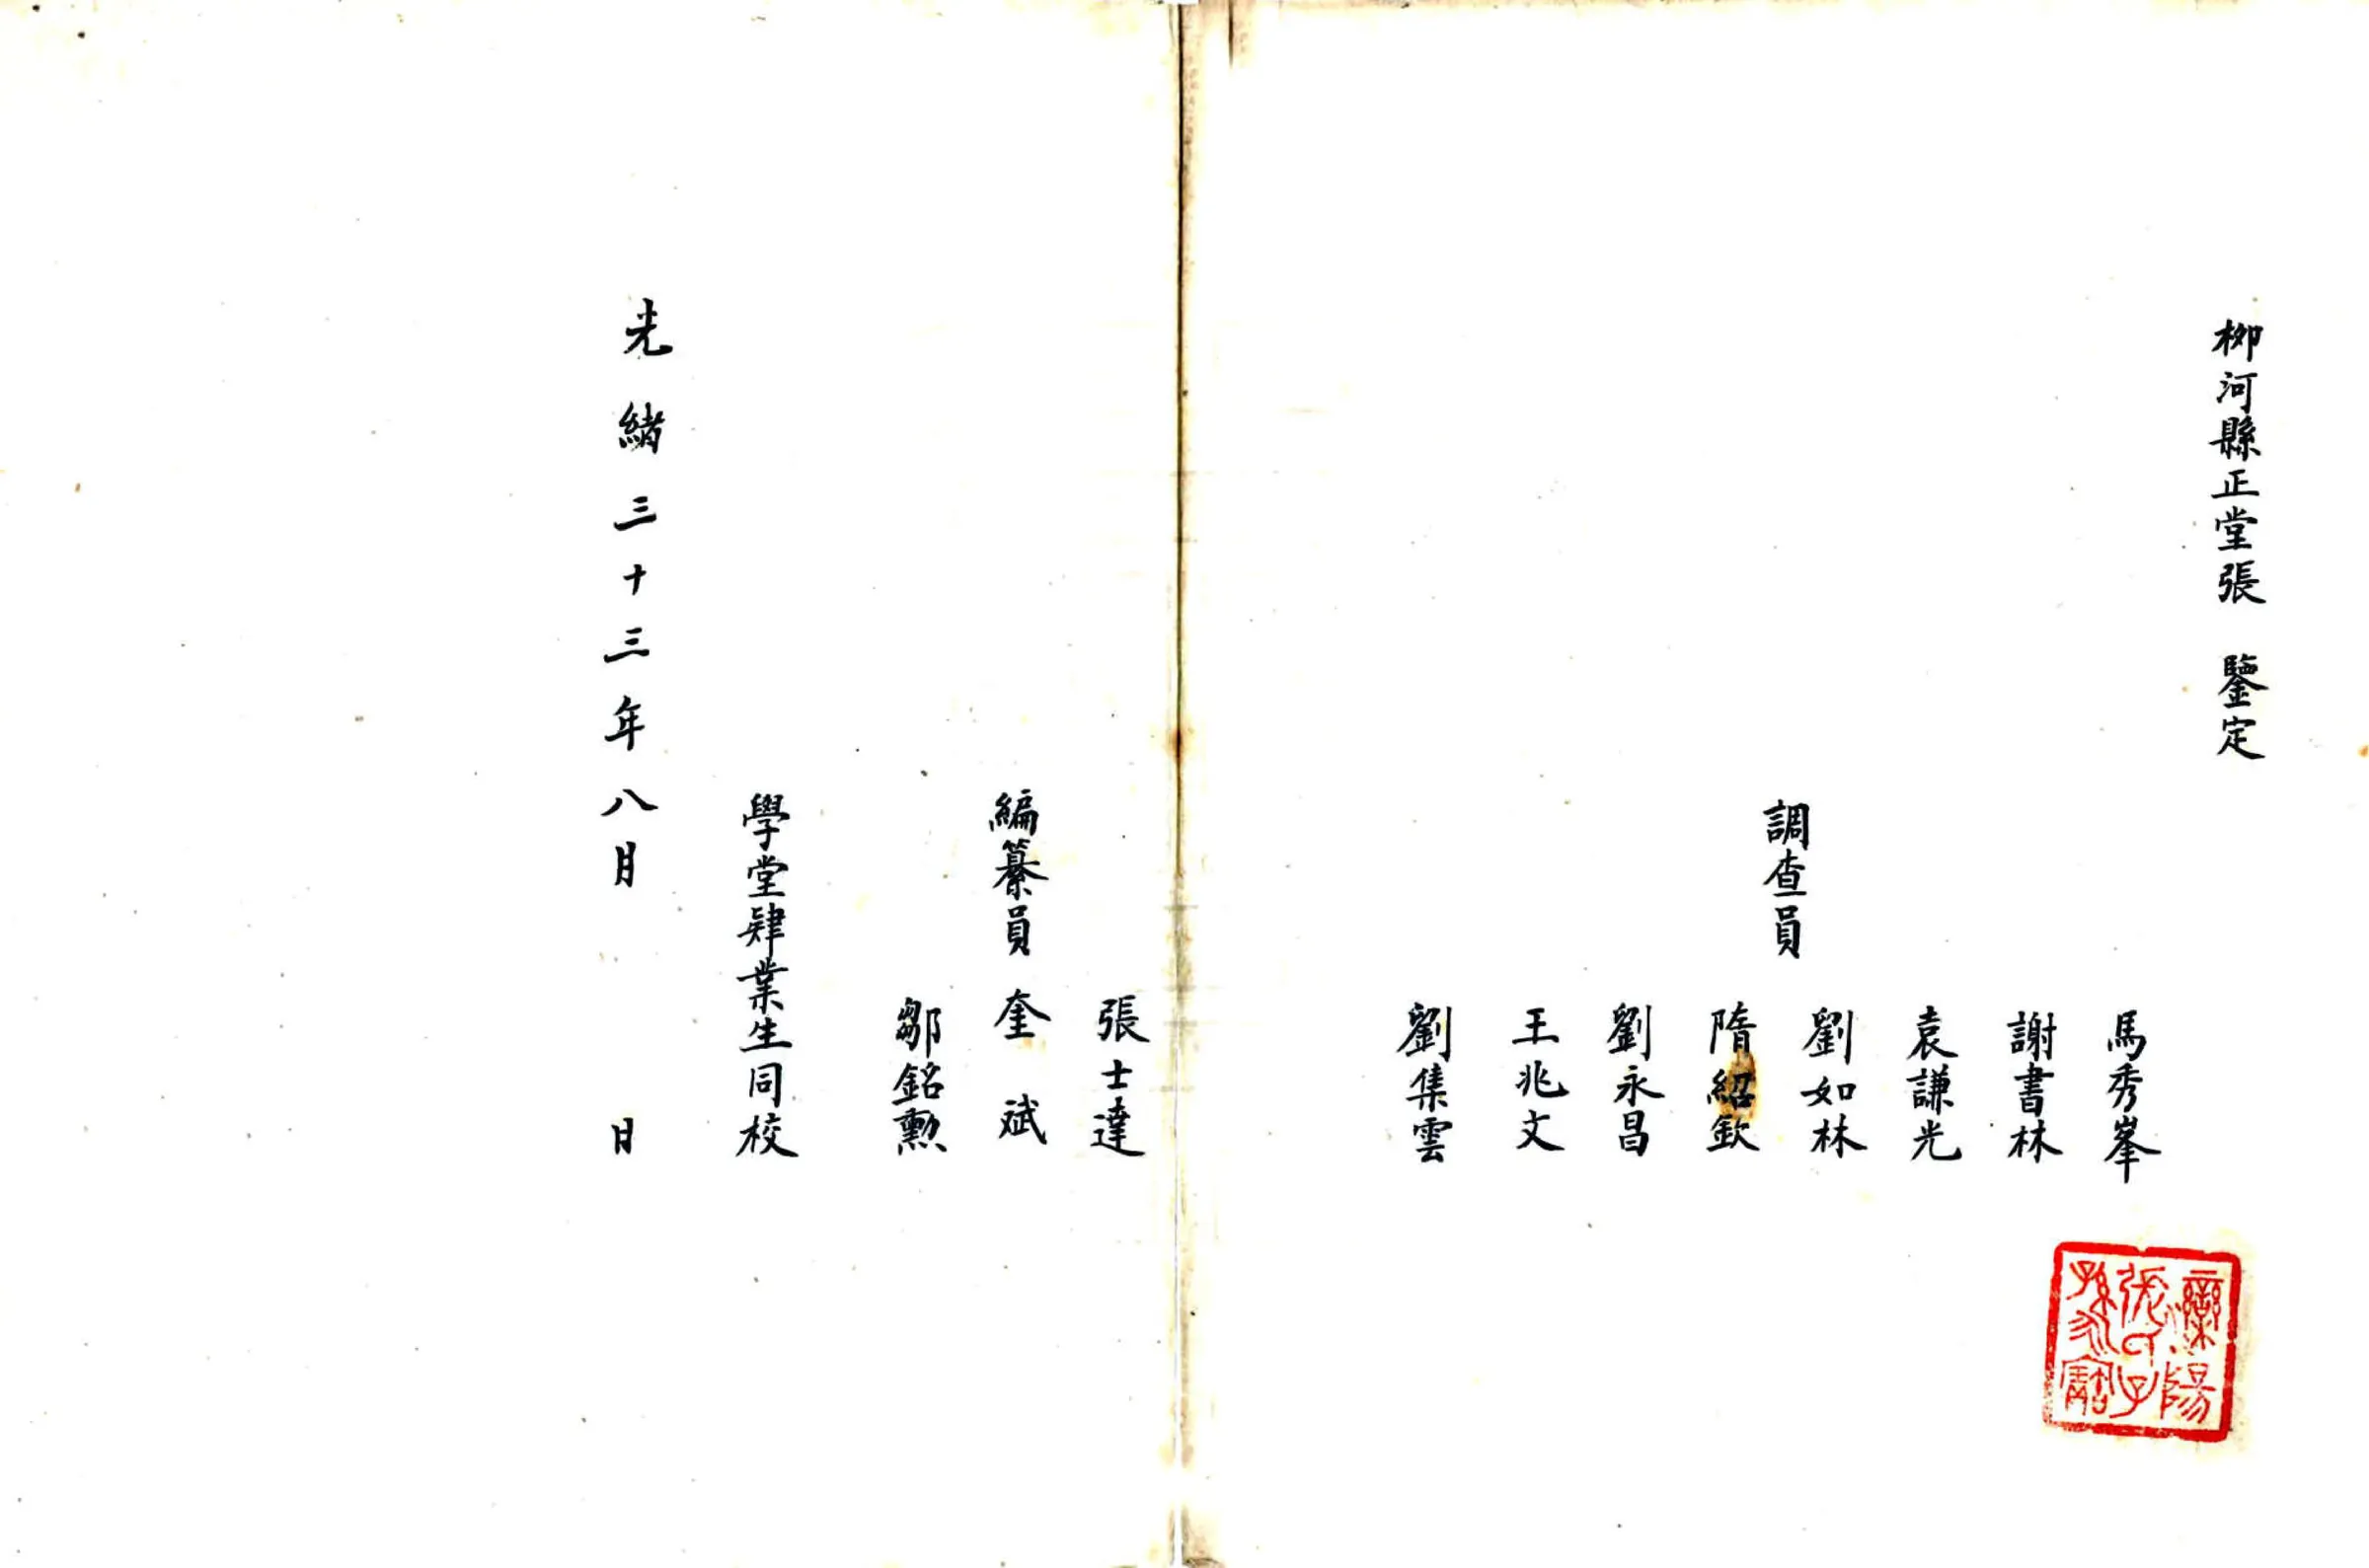 柳河縣正堂張　鑒定
馬秀峯
謝書林
袁謙光
劉如林
調查員
隋紹欽
劉永昌
王兆文
劉集雲
張士達
編纂員　奎　斌
鄒銘勲
學堂肄業生同校
光緒三十三年八月　　日